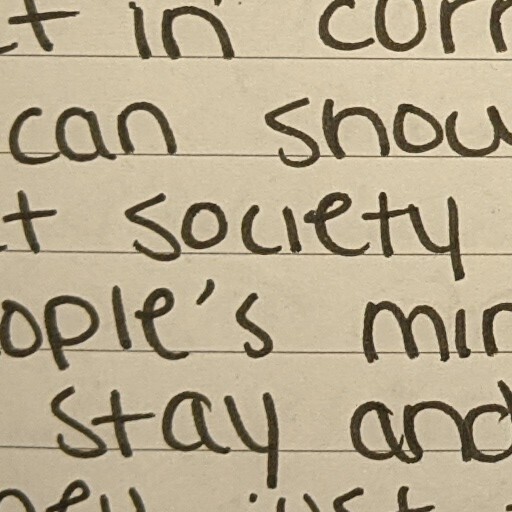 t in corr
can show
t society
ople's min
stay and
hey just